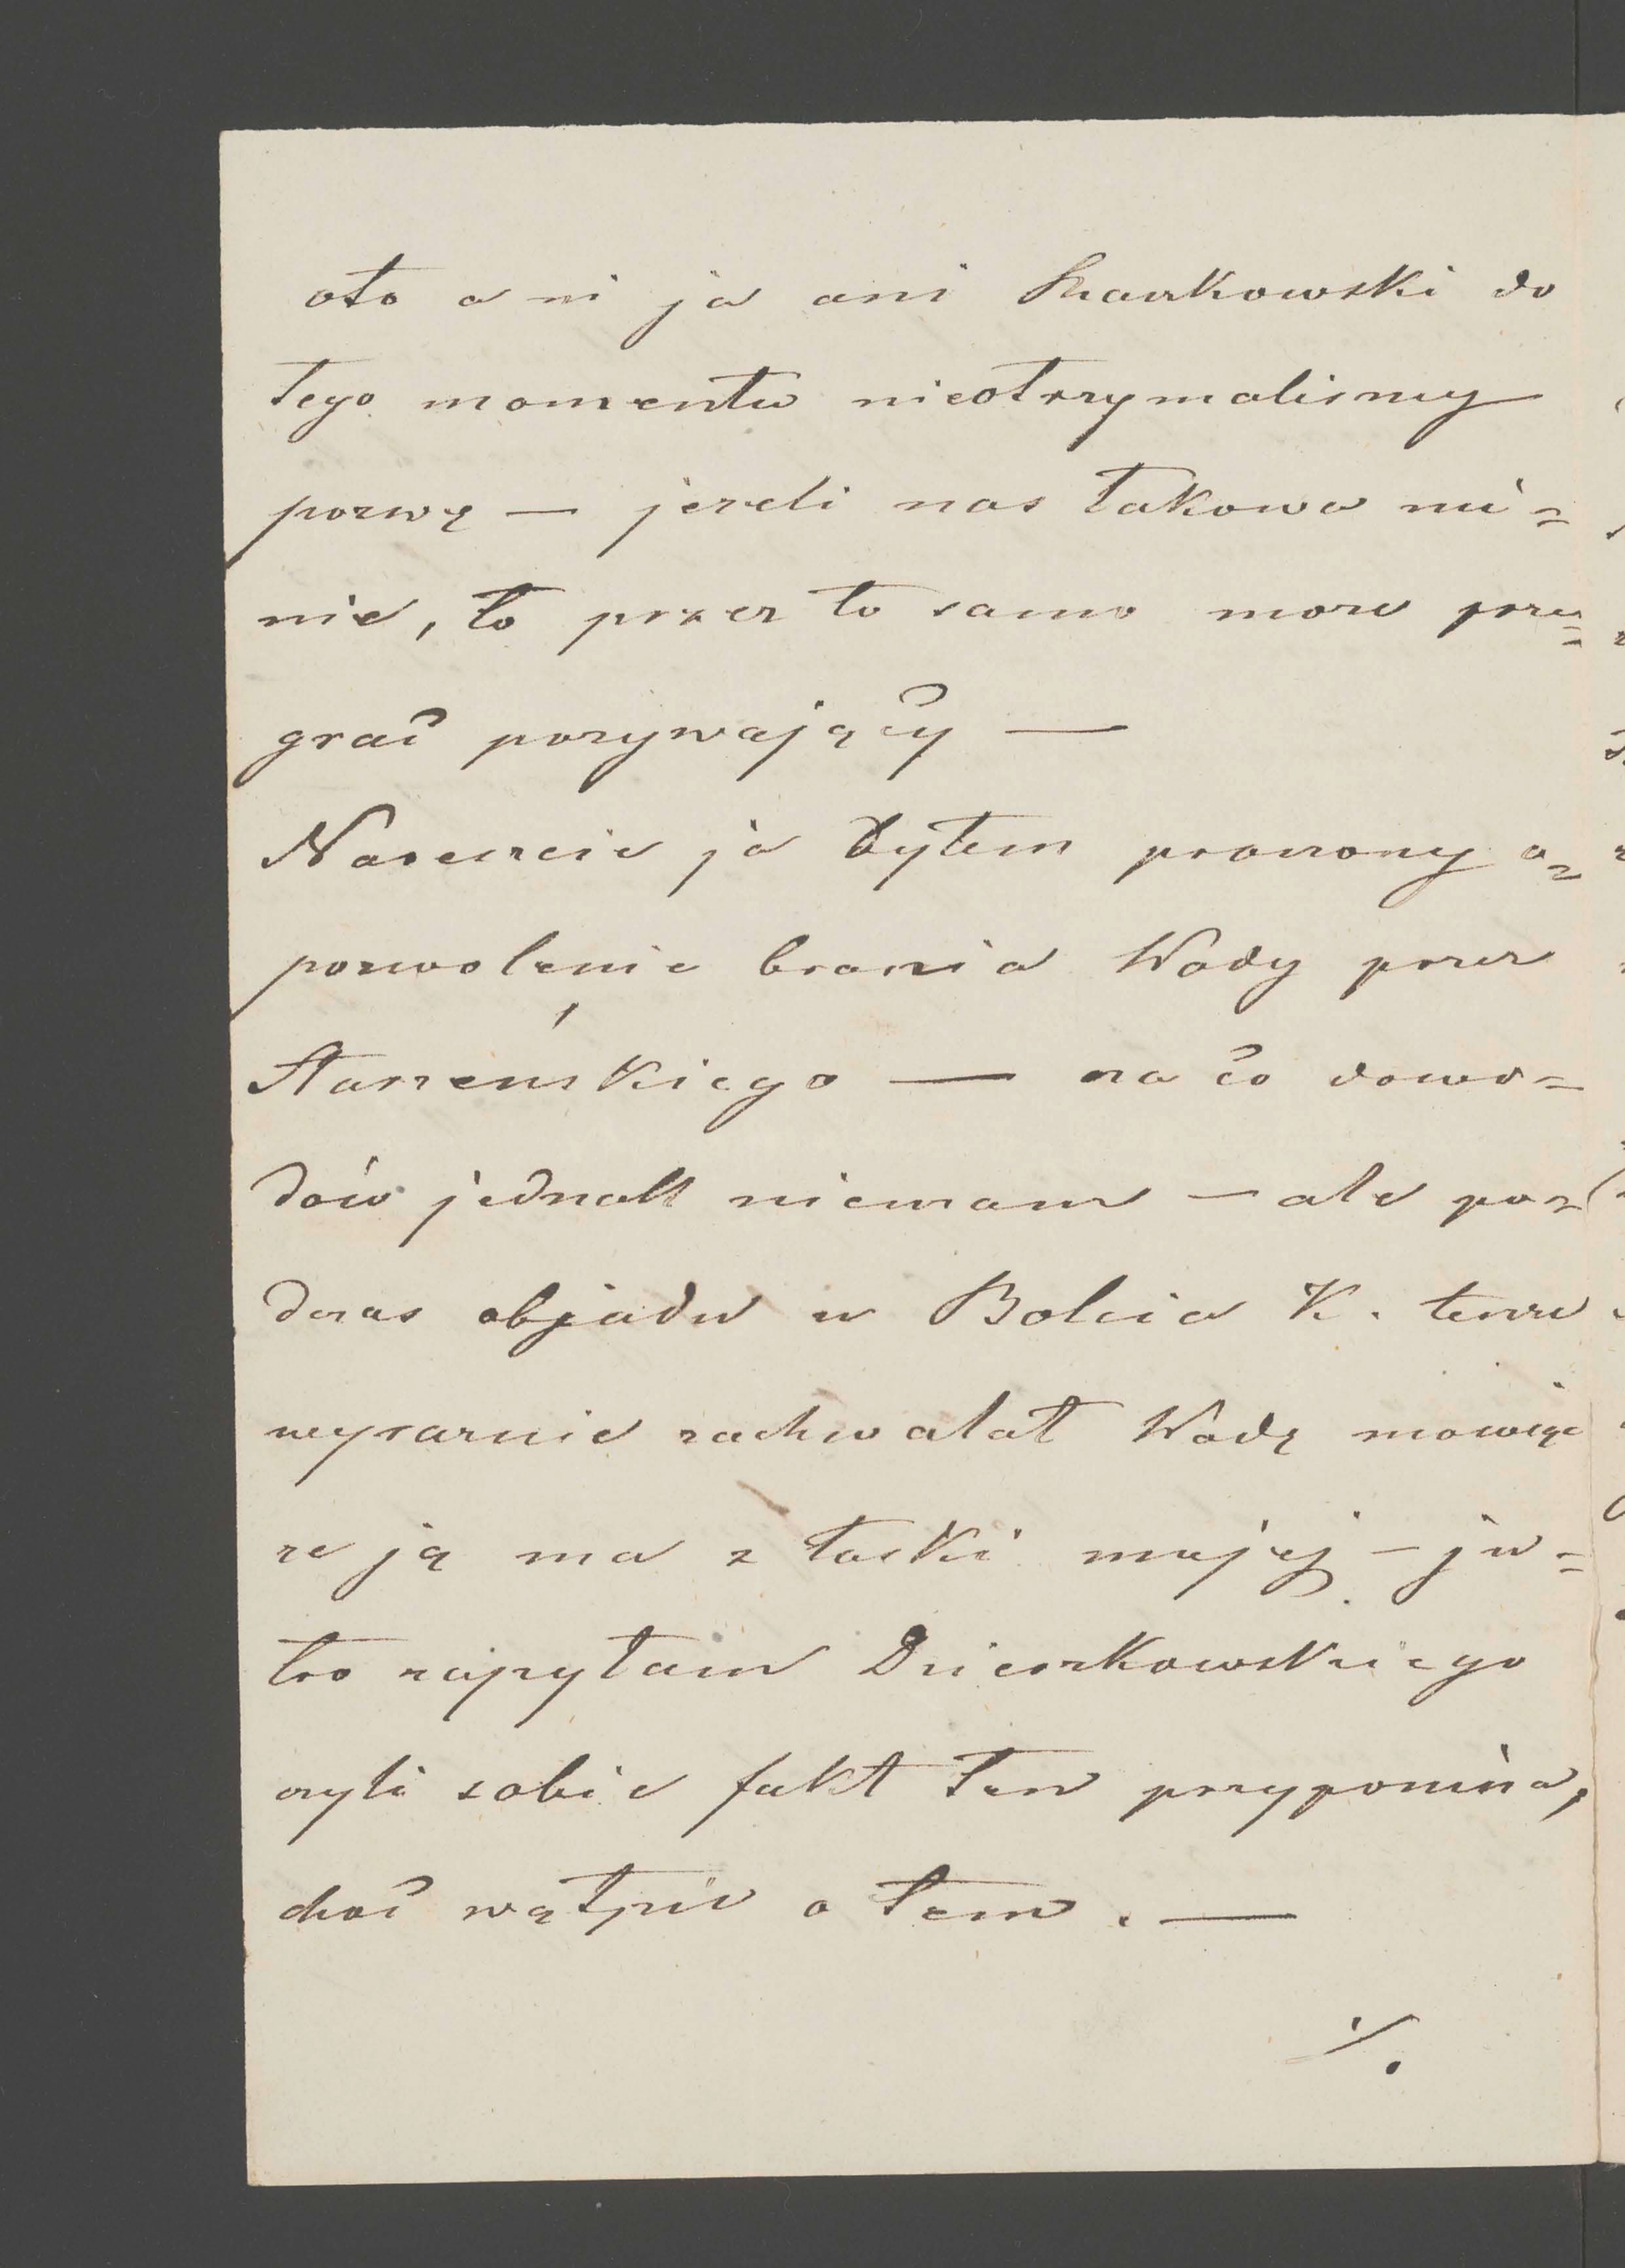 oto ani ja ani Szarkowski do
tego momentu nieotrzymalismy
pozwę — jezeli nas takowa mi=
nie, to przez to samo moze prze=
grać pozywający —
Nareszcie ja byłem proszony o=
pozwolenie brania Wody przez
Starzeńskiego — na co dowo=
dów jednak niemam — ale po=
dczas objadu u Bolcia K. tenze
wyraznie zachwalał Wodę mowiąc
ze ją ma z łaski mojej — ju=
tro zapytam Dzierzkowskiego
czyli sobie fakt ten przypomina,
choć wątpie o tem. —
./.